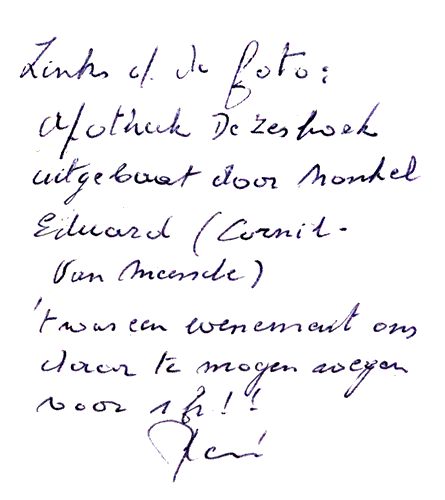 Links o/ de foto:
Apotheek De Zeshoek
uitgebaat door nonkel
Eduard (Cornil-
Van Meensele)
't was een evenement ons
daar te mogen wegen
voor 1 fr!!
René